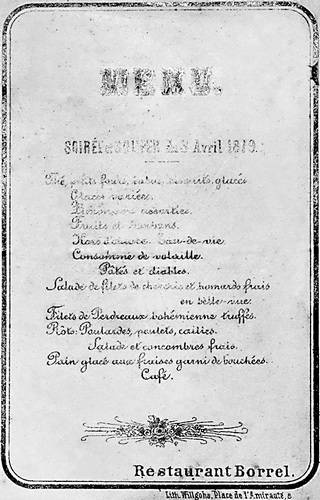 MENU.
SOIRÉE et SOUPER du Avril 1879.
Thé, petits fours, glacés
Glaces variées.
assorties.
Fruits et bonbons.
Hors d'œuvre. Eau-de-vie.
Consommé de volaille.
Pâtés et diables.
Salade de filets de et homards frais
en belle-vue.
Filets de Perdreaux bohémienne truffés.
Rôts: Poulardes, poulets, cailles.
Salade et concombres frais.
Pain glacé aux fraises garni de bouchées.
Café.
Restaurant Borrel.
Lith. Willgohs, Place de l'Amirauté,